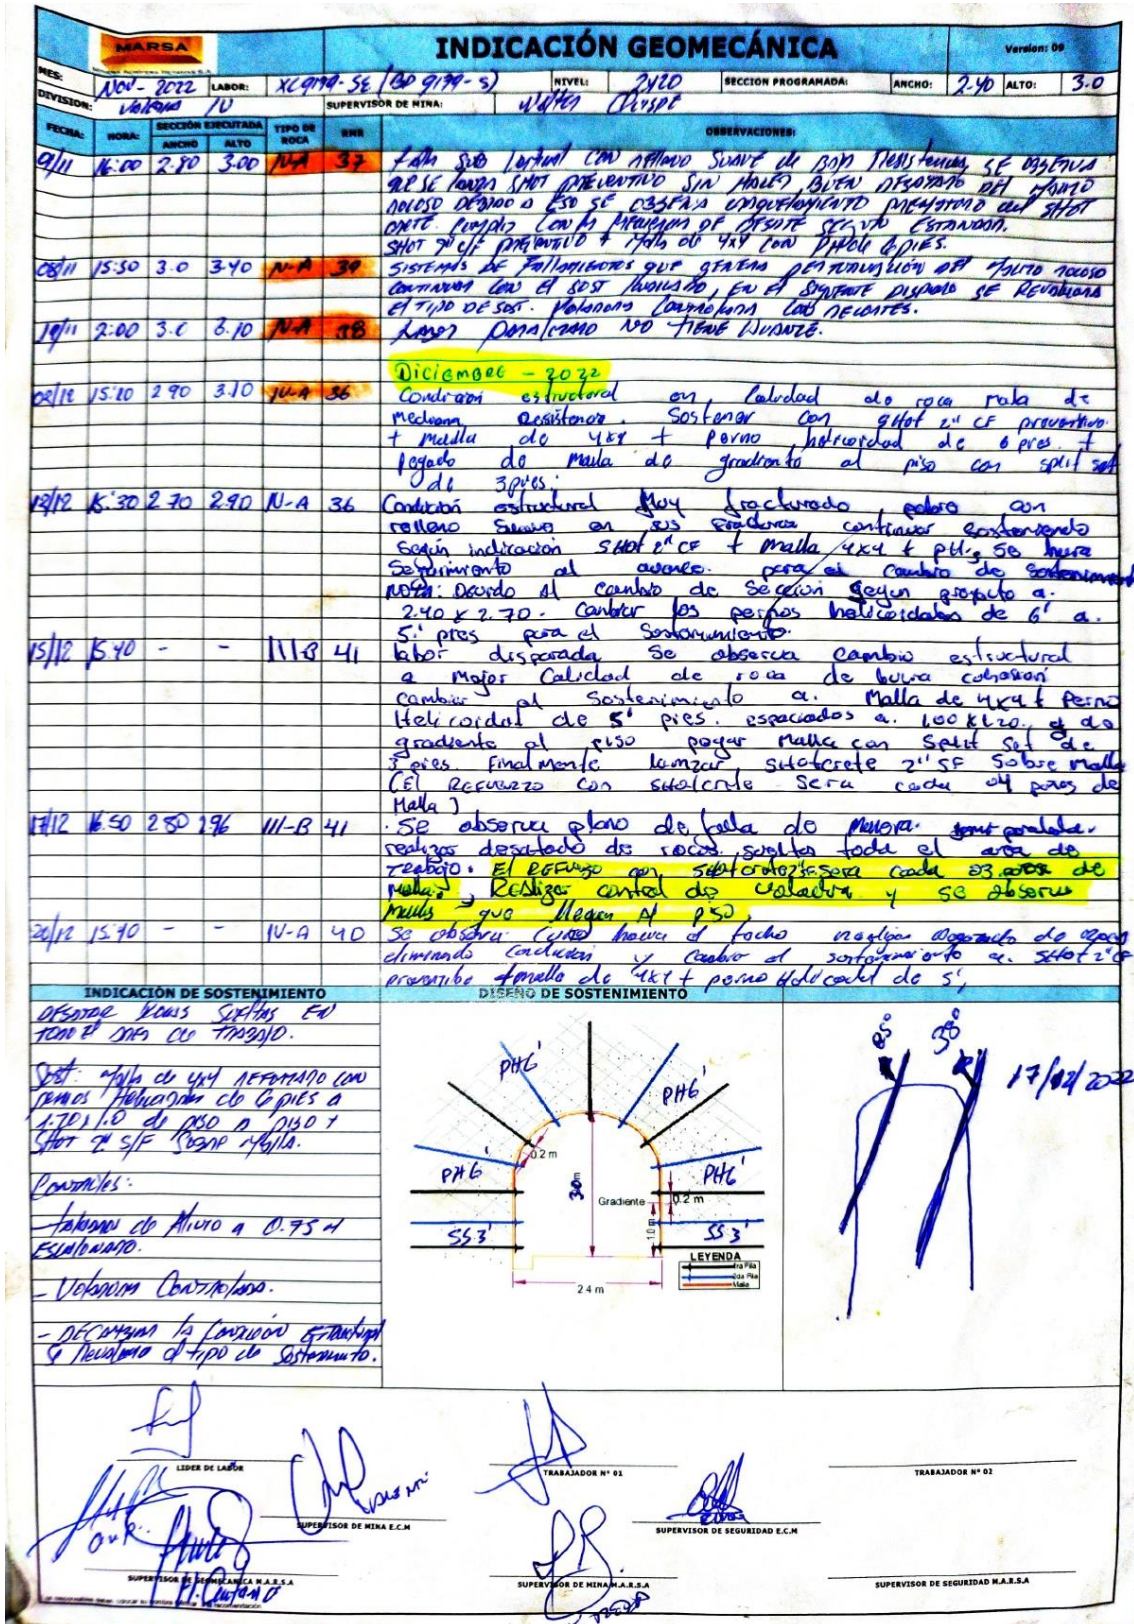 MARSA
INDICACIÓN GEOMECÁNICA
Version: 09
MES: Nov - 2022 LABOR: XC9179-SE (BP 9179-S) NIVEL: 2420 SECCION PROGRAMADA: ANCHO: 2.40 ALTO: 3.0
DIVISION: IU SUPERVISOR DE MINA: Walter Quispe
FECHA: HORA: SECCIÓN EJECUTADA TIPO DE ROCA RMR OBSERVACIONES:
ANCHO ALTO
16:00 2.80 3.00 IV-A 37 Falla sub con relleno suave de baja resistencia, se observa
que se lanza shot preventivo sin hacer buen desatado del macizo
rocoso debido a eso se observa prematuro del shot
crete. Cumplir con la de desate según estandar.
Shot 2" c/f preventivo + malla de 4x4 con de 6 pies.
08/11 15:50 3.0 3.40 IV-A 39 Sistemas de fallamientos que genera perturbación del macizo rocoso
continuar con el sost indicado, en el siguiente disparo se revaluara
el tipo de sost. Voladura controlada con recortes.
19/11 2:00 3.0 3.10 IV-A 38 Labor paralizado no tiene avance.
Diciembre - 2022
02/12 15:20 2.90 3.10 IV-A 36 Condicion estructural en calidad de roca mala de
mediana Resistencia. Sostener con sHot 2" CF preventivo.
+ malla de 4x4 + perno helicoidal de 6 pies. +
pegado de malla de gradiente al piso con split set
de 3 pies.
12/12 15:30 2.70 2.90 IV-A 36 Condición estructural Muy fracturado con
relleno Suave en sus Fracturas continuar sosteniendo
Según indicación SHot 2" CF + Malla 4x4 + pH., se hara
Seguimiento al avance. para el cambio de Sostenimiento
NOTA: Devido Al cambio de Sección Segun proyecto a.
2.40 x 2.70. Cambiar los pernos helicoidales de 6' a.
5' pies para el Sostenimiento.
15/12 15.40 - - III-B 41 labor disparada Se observa cambio estructural
a Mejor Calidad de roca de buena cohesion
cambiar el Sostenimiento a. Malla de 4x4 + Perno
Helicoidal de 5' pies. espaciados a. 1.00 x 1.20. de
gradiente al piso pegar Malla con Split Set de
3 pies. Finalmente lanzar sHotcrete 2" SF Sobre Malla
(El REFUERZO con sHotcrete Sera cada 04 de
Malla)
17/12 16.50 2.80 2.96 III-B 41 . Se observa plano de falla de Manera.
realizar desatado de rocas sueltas toda el area de
Trabajo. El REFUERZO con sHotcrete 2" SF sera cada 03 de
Malla, REalizar control de voladura y se observa
Mallas que llegan Al piso.
20/12 15.40 - - IV-A 40 Se observa hacia el techo desatado de
eliminando conducion y Cambio el sostenimiento a. SHot 2" CF
preventivo + malla de 4x4 + perno Helicoidal de 5',
INDICACIÓN DE SOSTENIMIENTO
DISEÑO DE SOSTENIMIENTO
DESATAR ROCAS SUELTAS EN
TODO EL AREA DE TRABAJO.
Sost: Malla de 4x4 REFORZADO CON
pernos Helicoidal de 6 pies a
1.20x1.0 de PISO A PISO +
SHOT 2" S/F SOBRE MALLA.
Controles:
- Taladros de Alivio a 0.75 H
ESCALONADO.
- Voladura Controlada.
- DE CAMBIAR la Condición Estructural
se Revaluara el tipo de Sostenimiento.
PH6'
PH6'
PH6'
PH6'
0.2 m
3.0m
Gradiente
0.2 m
1.0 m
SS3'
SS3'
2.4 m
LEYENDA
1ra Fila
2da Fila
Malla
85°
38°
17/12/2022
LIDER DE LABOR
TRABAJADOR N° 01
TRABAJADOR N° 02
SUPERVISOR DE MINA E.C.M
SUPERVISOR DE SEGURIDAD E.C.M
SUPERVISOR DE GEOMECANICA M.A.R.S.A
SUPERVISOR DE MINA M.A.R.S.A
SUPERVISOR DE SEGURIDAD M.A.R.S.A